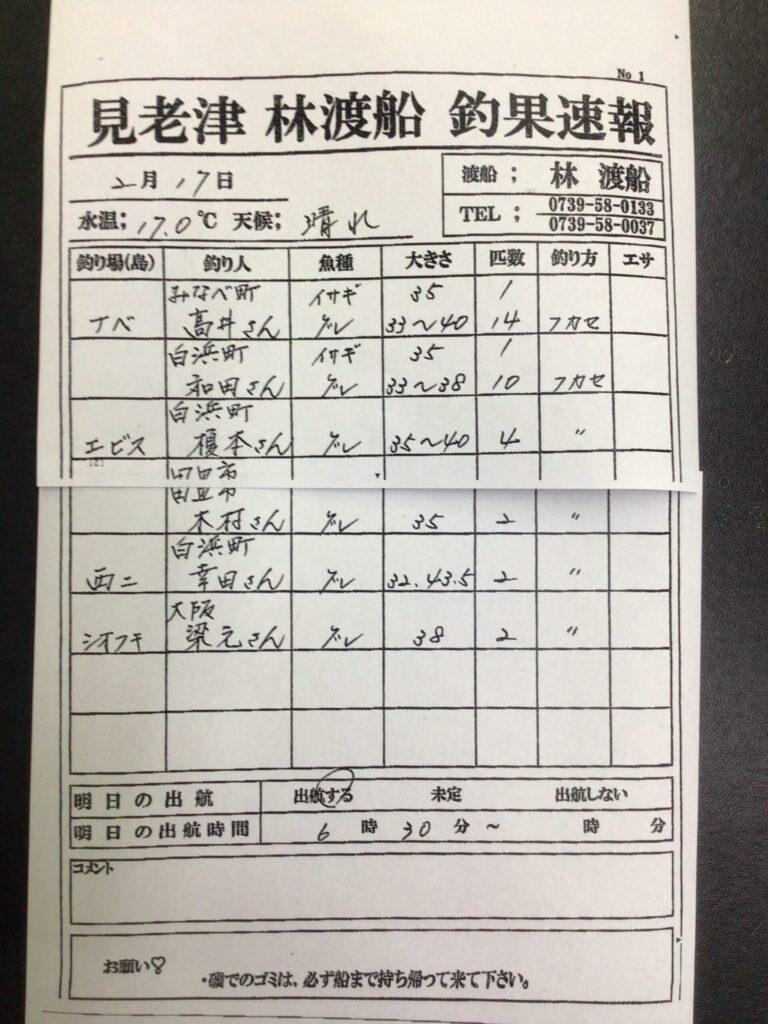 No 1
見老津 林渡船 釣果速報
2月17日
渡船； 林 渡船
水温；17.0℃ 天候；晴れ
TEL； 0739-58-0133
0739-58-0037
釣り場(島) 釣り人 魚種 大きさ 匹数 釣り方 エサ
みなべ町 イサギ 35 1
ナベ 高井さん グレ 33〜40 14 フカセ
白浜町 イサギ 35 1
和田さん グレ 33〜38 10 フカセ
白浜町
エビス 榎本さん グレ 35〜40 4 〃
田辺市
木村さん グレ 35 2 〃
白浜町
西ニ 幸田さん グレ 32.43.5 2 〃
大阪
シオフキ 梁元さん グレ 38 2 〃
明日の出航 出航する 未定 出航しない
明日の出航時間 6時30分〜 時 分
コメント
お願い♡
・磯でのゴミは、必ず船まで持ち帰って来て下さい。